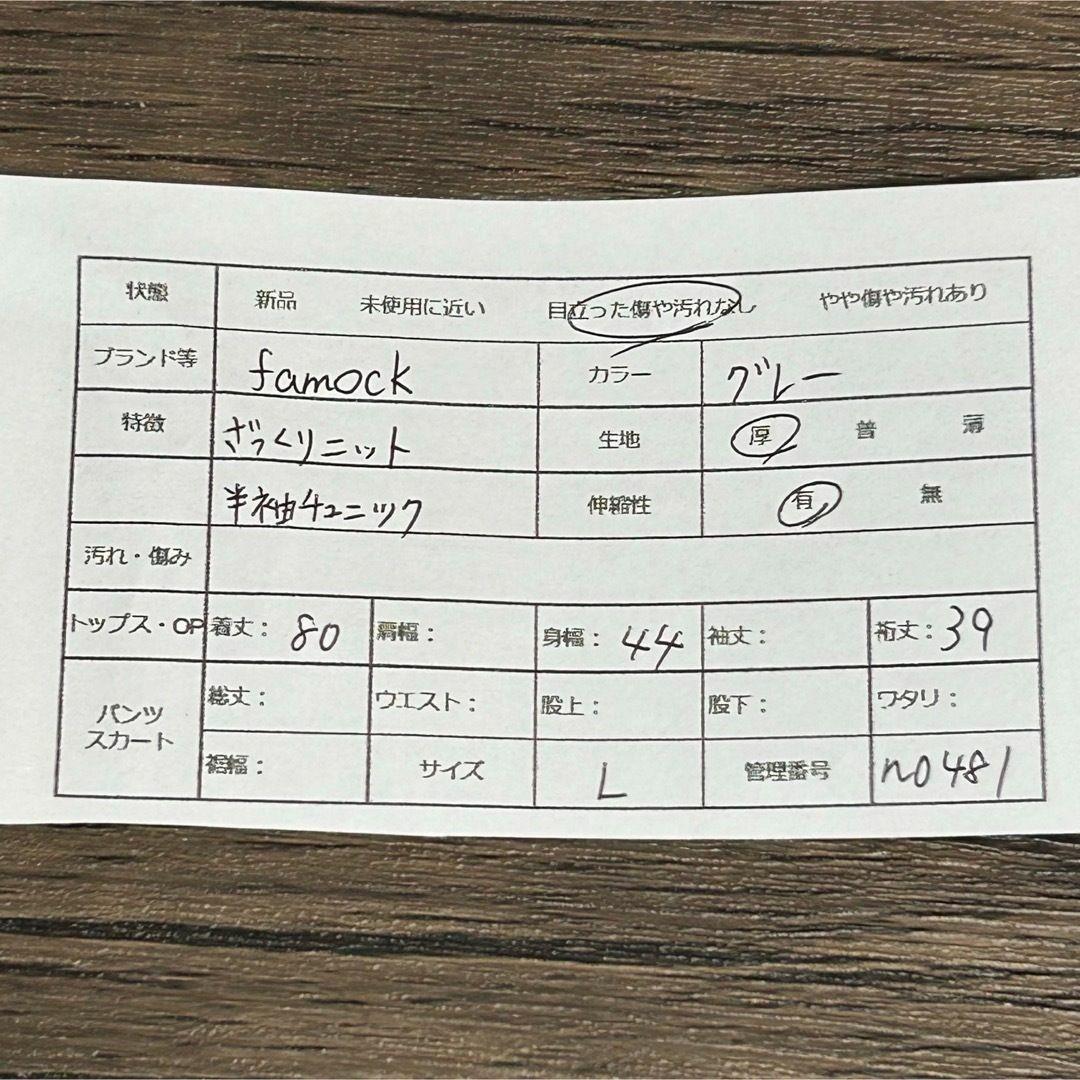 状態 新品 未使用に近い 目立った傷や汚れなし やや傷や汚れあり
ブランド等 famock カラー グレー
特徴 ざっくりニット 生地 厚 普 薄
半袖チュニック 伸縮性 有 無
汚れ・傷み
トップス・OP 着丈: 80 肩幅: 身幅: 44 袖丈: 裄丈: 39
パンツ スカート 総丈: ウエスト: 股上: 股下: ワタリ:
裾幅: サイズ L 管理番号 no481